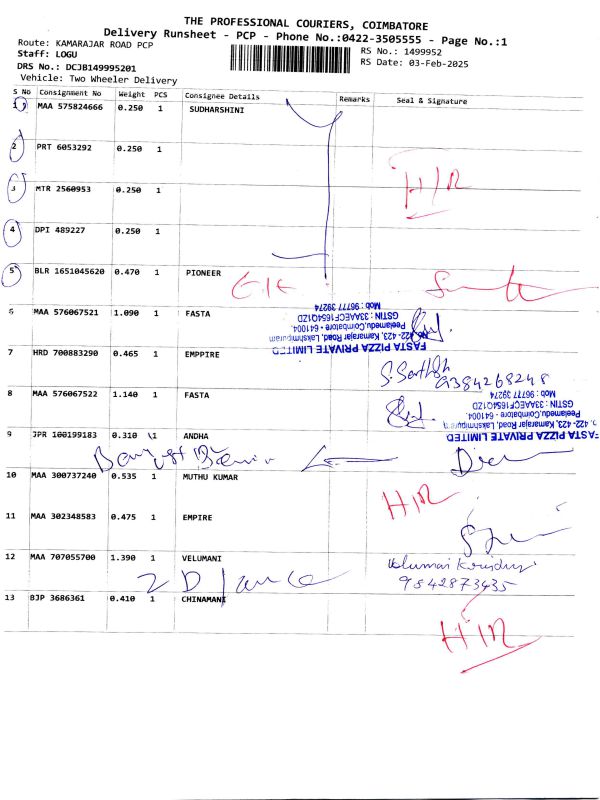 THE PROFESSIONAL COURIERS, COIMBATORE
Delivery Runsheet - PCP - Phone No.:0422-3505555 - Page No.:1
Route: KAMARAJAR ROAD PCP
Staff: LOGU
RS No.: 1499952
DRS No.: DCJB149995201
RS Date: 03-Feb-2025
Vehicle: Two Wheeler Delivery
S No Consignment No Weight PCS Consignee Details Remarks Seal & Signature
1 MAA 575824666 0.250 1 SUDHARSHINI
2 PRT 6053292 0.250 1
3 MTR 2560953 0.250 1
H/R
4 DPI 489227 0.250 1
5 BLR 1651045620 0.470 1 PIONEER
6 MAA 576067521 1.090 1 FASTA
FASTA PIZZA PRIVATE LIMITED
422- 423, Kamarajar Road, Lakshmipuram
Peelamedu, Coimbatore - 641004.
GSTIN : 33AAECF1654Q1ZD
Mob : 96777 39274
7 HRD 700883290 0.465 1 EMPPIRE
9384268248
8 MAA 576067522 1.140 1 FASTA
FASTA PIZZA PRIVATE LIMITED
422- 423, Kamarajar Road, Lakshmipuram
Peelamedu, Coimbatore - 641004.
GSTIN : 33AAECF1654Q1ZD
Mob : 96777 39274
9 JPR 100199183 0.310 1 ANDHA
10 MAA 300737240 0.535 1 MUTHU KUMAR
H/R
11 MAA 302348583 0.475 1 EMPIRE
12 MAA 707055700 1.390 1 VELUMANI
9842873435
13 BJP 3686361 0.410 1 CHINAMANI
H/R